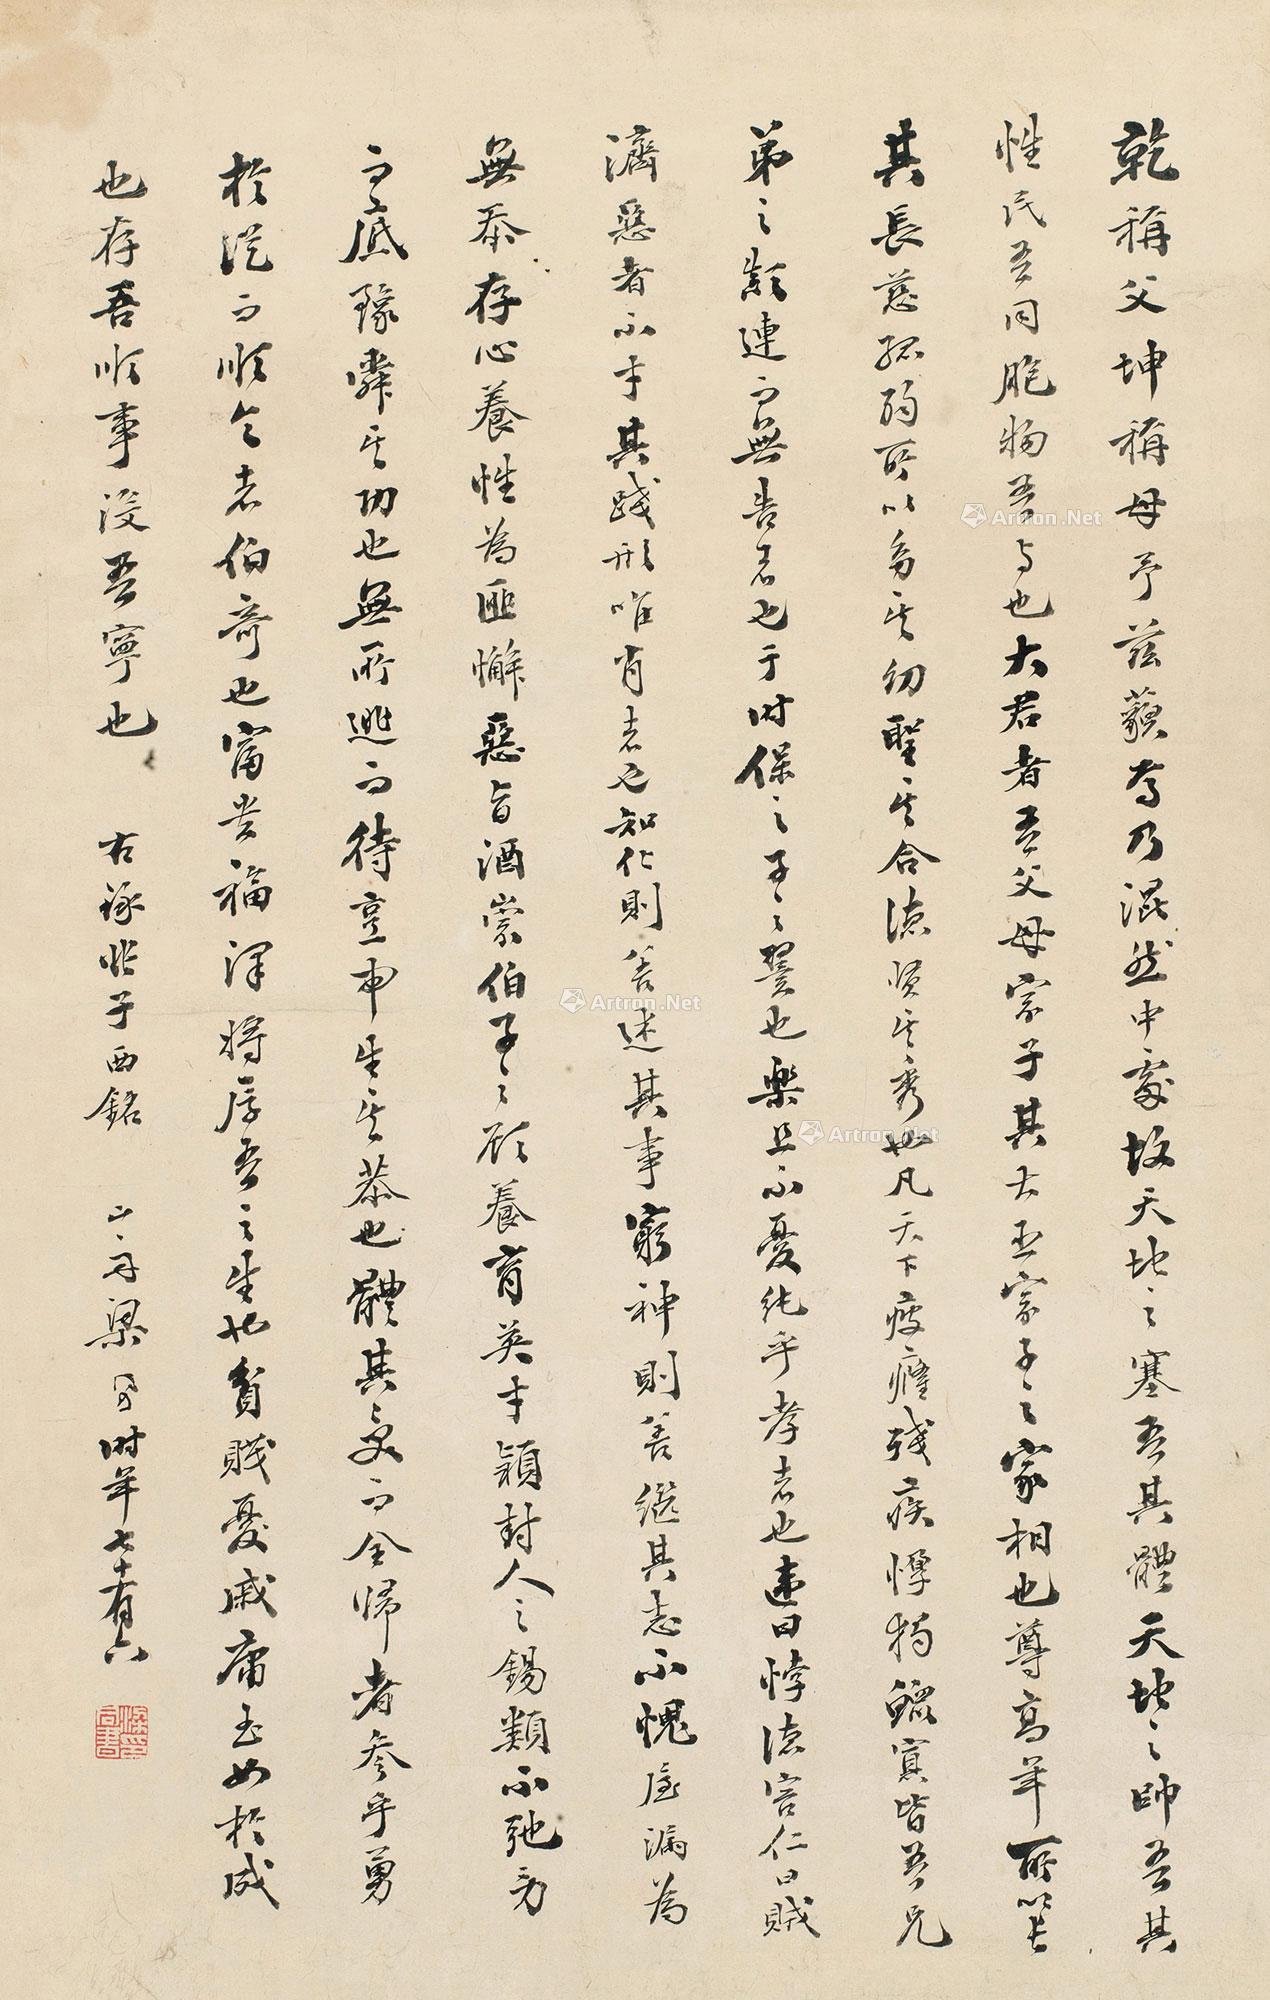 乾稱父坤稱母予茲藐焉乃混然中處故天地之塞吾其體天地之帥吾其
性民吾同胞物吾與也大君者吾父母宗子其大臣宗子之家相也尊高年所以長
其長慈孤弱所以幼其幼聖其合德賢其秀也凡天下疲癃殘疾惸獨鰥寡皆吾兄
弟之顛連而無告者也于時保之子之翼也樂且不憂純乎孝者也違曰悖德害仁曰賊
濟惡者不才其踐形唯肖者也知化則善述其事窮神則善繼其志不愧屋漏為
無忝存心養性為匪懈惡旨酒崇伯子之顧養育英才穎封人之錫類不弛勞
而底豫舜其功也無所逃而待烹申生其恭也體其受而全歸者參乎勇
於從而順令者伯奇也富貴福澤將厚吾之生也貧賤憂戚庸玉女於成
也存吾順事沒吾寧也 右錄張子西銘 山舟梁同書時年七十有六
梁印同書
Artron.Net
Artron.Net
Artron.Net